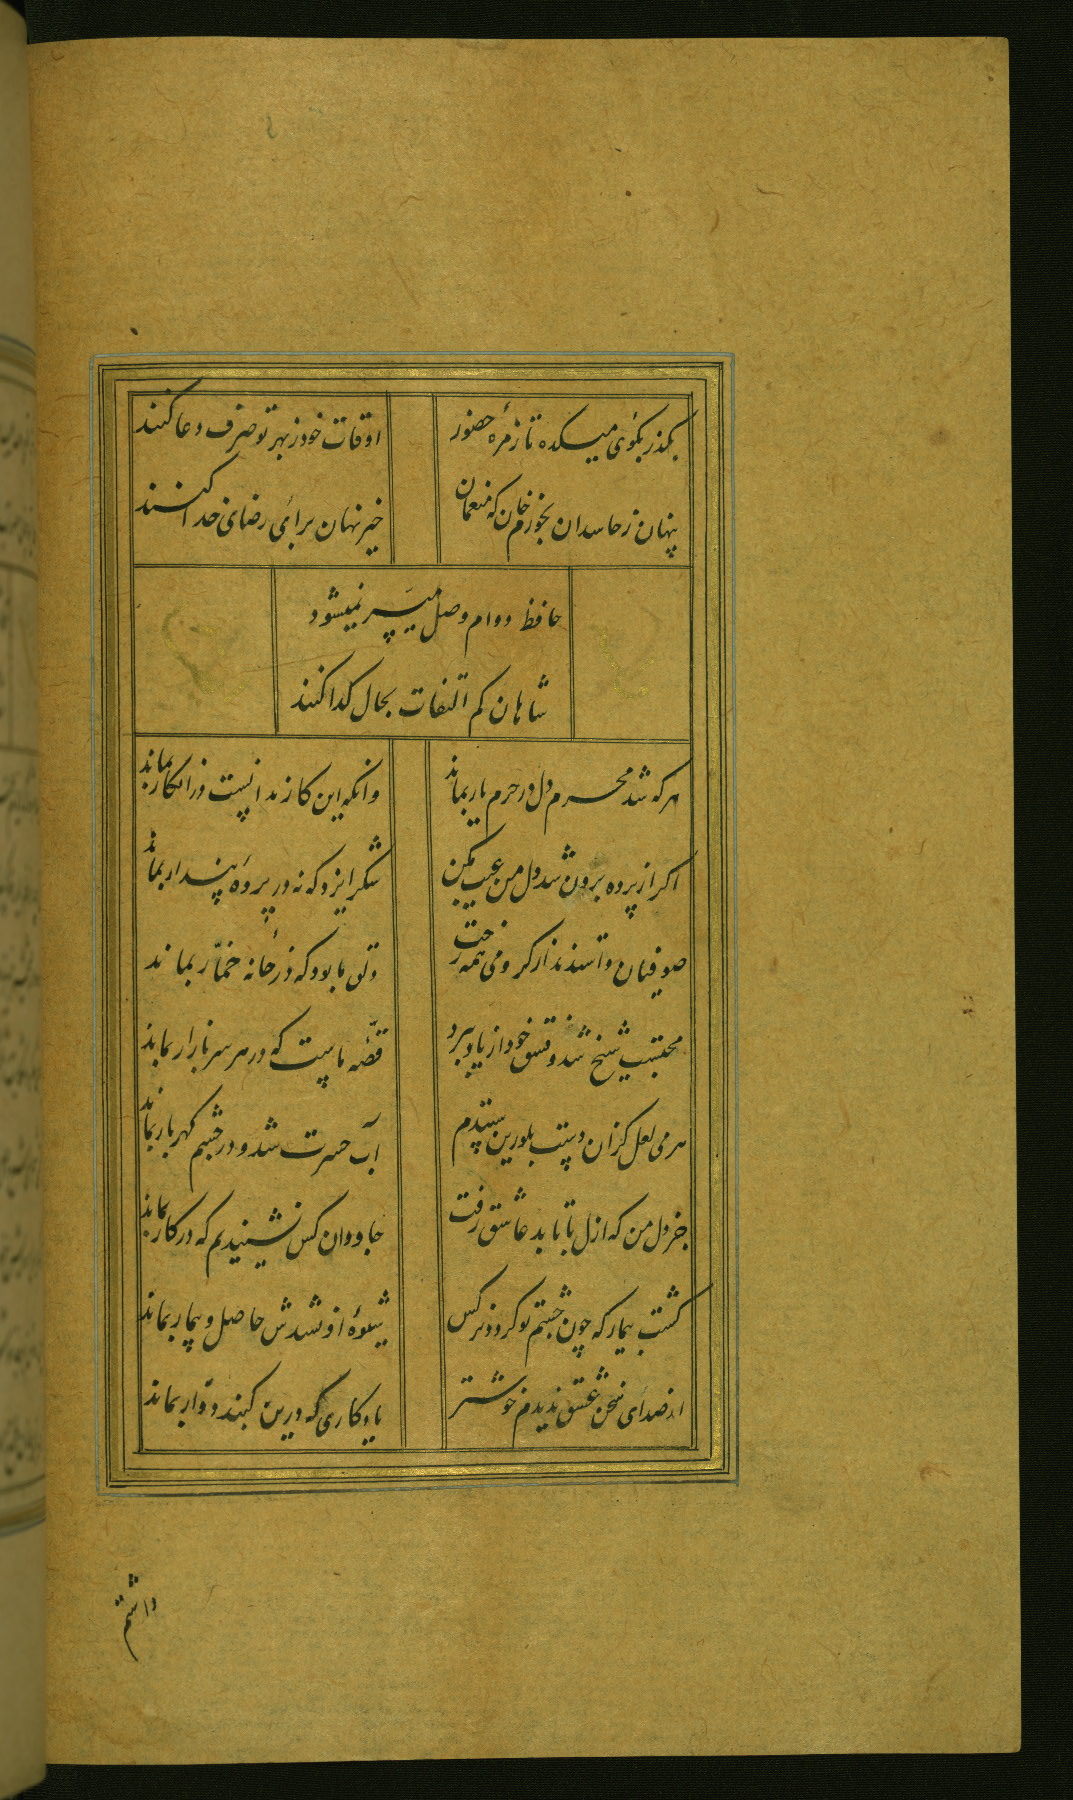 بگذر بکوی میکده تا زمرهٔ حضور
اوقات خود ز بهر تو صرف دعا کنند
پنهان ز حاسدان بخودم خوان که منعمان
خیر نهان برای رضای خدا کنند
حافظ دوام وصل میسر نمیشود
شاهان کم التفات بحال گدا کنند
هر که شد محرم دل در حرم یار بماند
وانکه این کار ندانست در انکار بماند
اگر از پرده برون شد دل من عیب مکن
شکر ایزد که نه در پردهٔ پندار بماند
صوفیان واستدند از گرو می همه رخت
دلق ما بود که در خانهٔ خمّار بماند
محتسب شیخ شد و فسق خود از یاد ببرد
قصّهٔ ماست که در هر سر بازار بماند
هر می لعل کزان دست بلورین ستدم
آب حسرت شد و در چشم گهربار بماند
جز دل من که ازل تا بابد عاشق رفت
جاودان کس نشنیدیم که در کار بماند
گشت بیمار که چون چشم تو گردد نرگس
شیوهٔ او نشدش حاصل و بیمار بماند
از صدای سخن عشق ندیدم خوشتر
یادگاری که درین گنبد دوّار بماند
داشتم